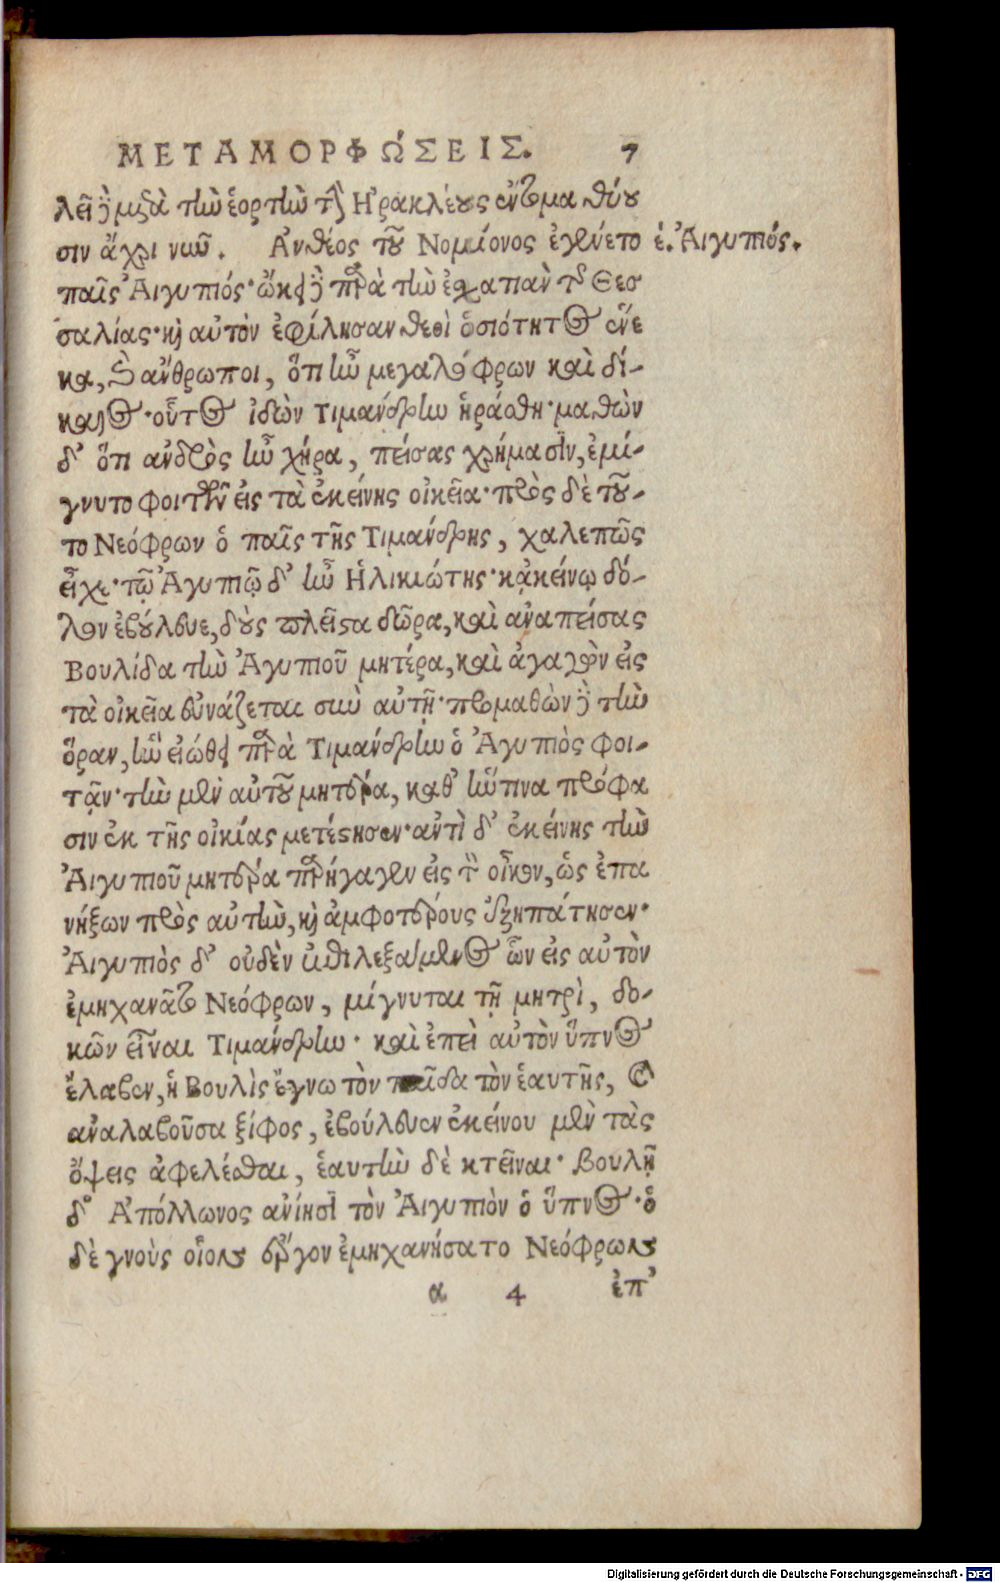 ΜΕΤΑΜΟΡΦΩΣΕΙΣ. 7
λεῖ δὲ μετὰ τὴν ἑορτὴν τοῦ Ἡρακλέους ἔντομα θύου
σιν ἄχρι νῦν. Ἀνθέος τοῦ Νομίονος ἐγένετο ἑ. Ἀιγυπιός.
παῖς Ἀιγυπιός· ᾤκει δὲ παρὰ τὴν ἐσχατιὰν τῆς Θεσ
σαλίας· καὶ αὐτὸν ἐφίλησαν θεοὶ ὁσιότητος ἕνε
κα, καὶ ἄνθρωποι, ὅτι ἦν μεγαλόφρων καὶ δί-
καιος· οὗτος ἰδὼν Τιμάνδρην ἠράσθη· μαθὼν
δ' ὅτι ἀνδρὸς ἦν χήρα, πείσας χρήμασιν, ἐμί-
γνυτο φοιτῶν εἰς τὰ ἐκείνης οἰκεῖα· πρὸς δὲ τοῦ-
το Νεόφρων ὁ παῖς τῆς Τιμάνδρης, χαλεπῶς
εἶχε· τῷ Ἀγυπιῷ δ' ἦν Ἡλικιώτης· κἀκείνῳ δό-
λον ἐβούλευε, δοὺς πλεῖστα δῶρα, καὶ ἀναπείσας
Βουλίδα τὴν Ἀγυπιοῦ μητέρα, καὶ ἀγαγὼν εἰς
τὰ οἰκεῖα εὐνάζεται σὺν αὐτῇ· προμαθὼν δὲ τὴν
ὥραν, ἣν εἰώθει παρὰ Τιμάνδρην ὁ Ἀγυπιὸς φοι-
τᾷν· τὴν μὲν αὐτοῦ μητέρα, καθ' ἥντινα πρόφα
σιν ἐκ τῆς οἰκίας μετέστησεν· ἀντὶ δ' ἐκείνης τὴν
Ἀιγυπιοῦ μητέρα παρήγαγεν εἰς τὸν οἶκον, ὡς ἐπα
νήξων πρὸς αὐτὴν, καὶ ἀμφοτέρους ἐξηπάτησεν·
Ἀιγυπιὸς δ' οὐδὲν ἐπιλεξάμενος ὧν εἰς αὐτὸν
ἐμηχανᾶτο Νεόφρων, μίγνυται τῇ μητρὶ, δο-
κῶν εἶναι Τιμάνδρην· καὶ ἐπεὶ αὐτὸν ὕπνος
ἔλαβεν, ἡ Βουλὶς ἔγνω τὸν παῖδα τὸν ἑαυτῆς, καὶ
ἀναλαβοῦσα ξίφος, ἐβούλευεν ἐκείνου μὲν τὰς
ὄψεις ἀφελέσθαι, ἑαυτὴν δὲ κτεῖναι· βουλῇ
δ' Ἀπόλλωνος ἀνίησι τὸν Ἀιγυπιὸν ὁ ὕπνος· ὁ
δὲ γνοὺς οἷον ἔργον ἐμηχανήσατο Νεόφρων
α 4 ἐπ'
Digitalisierung gefördert durch die Deutsche Forschungsgemeinschaft - DFG